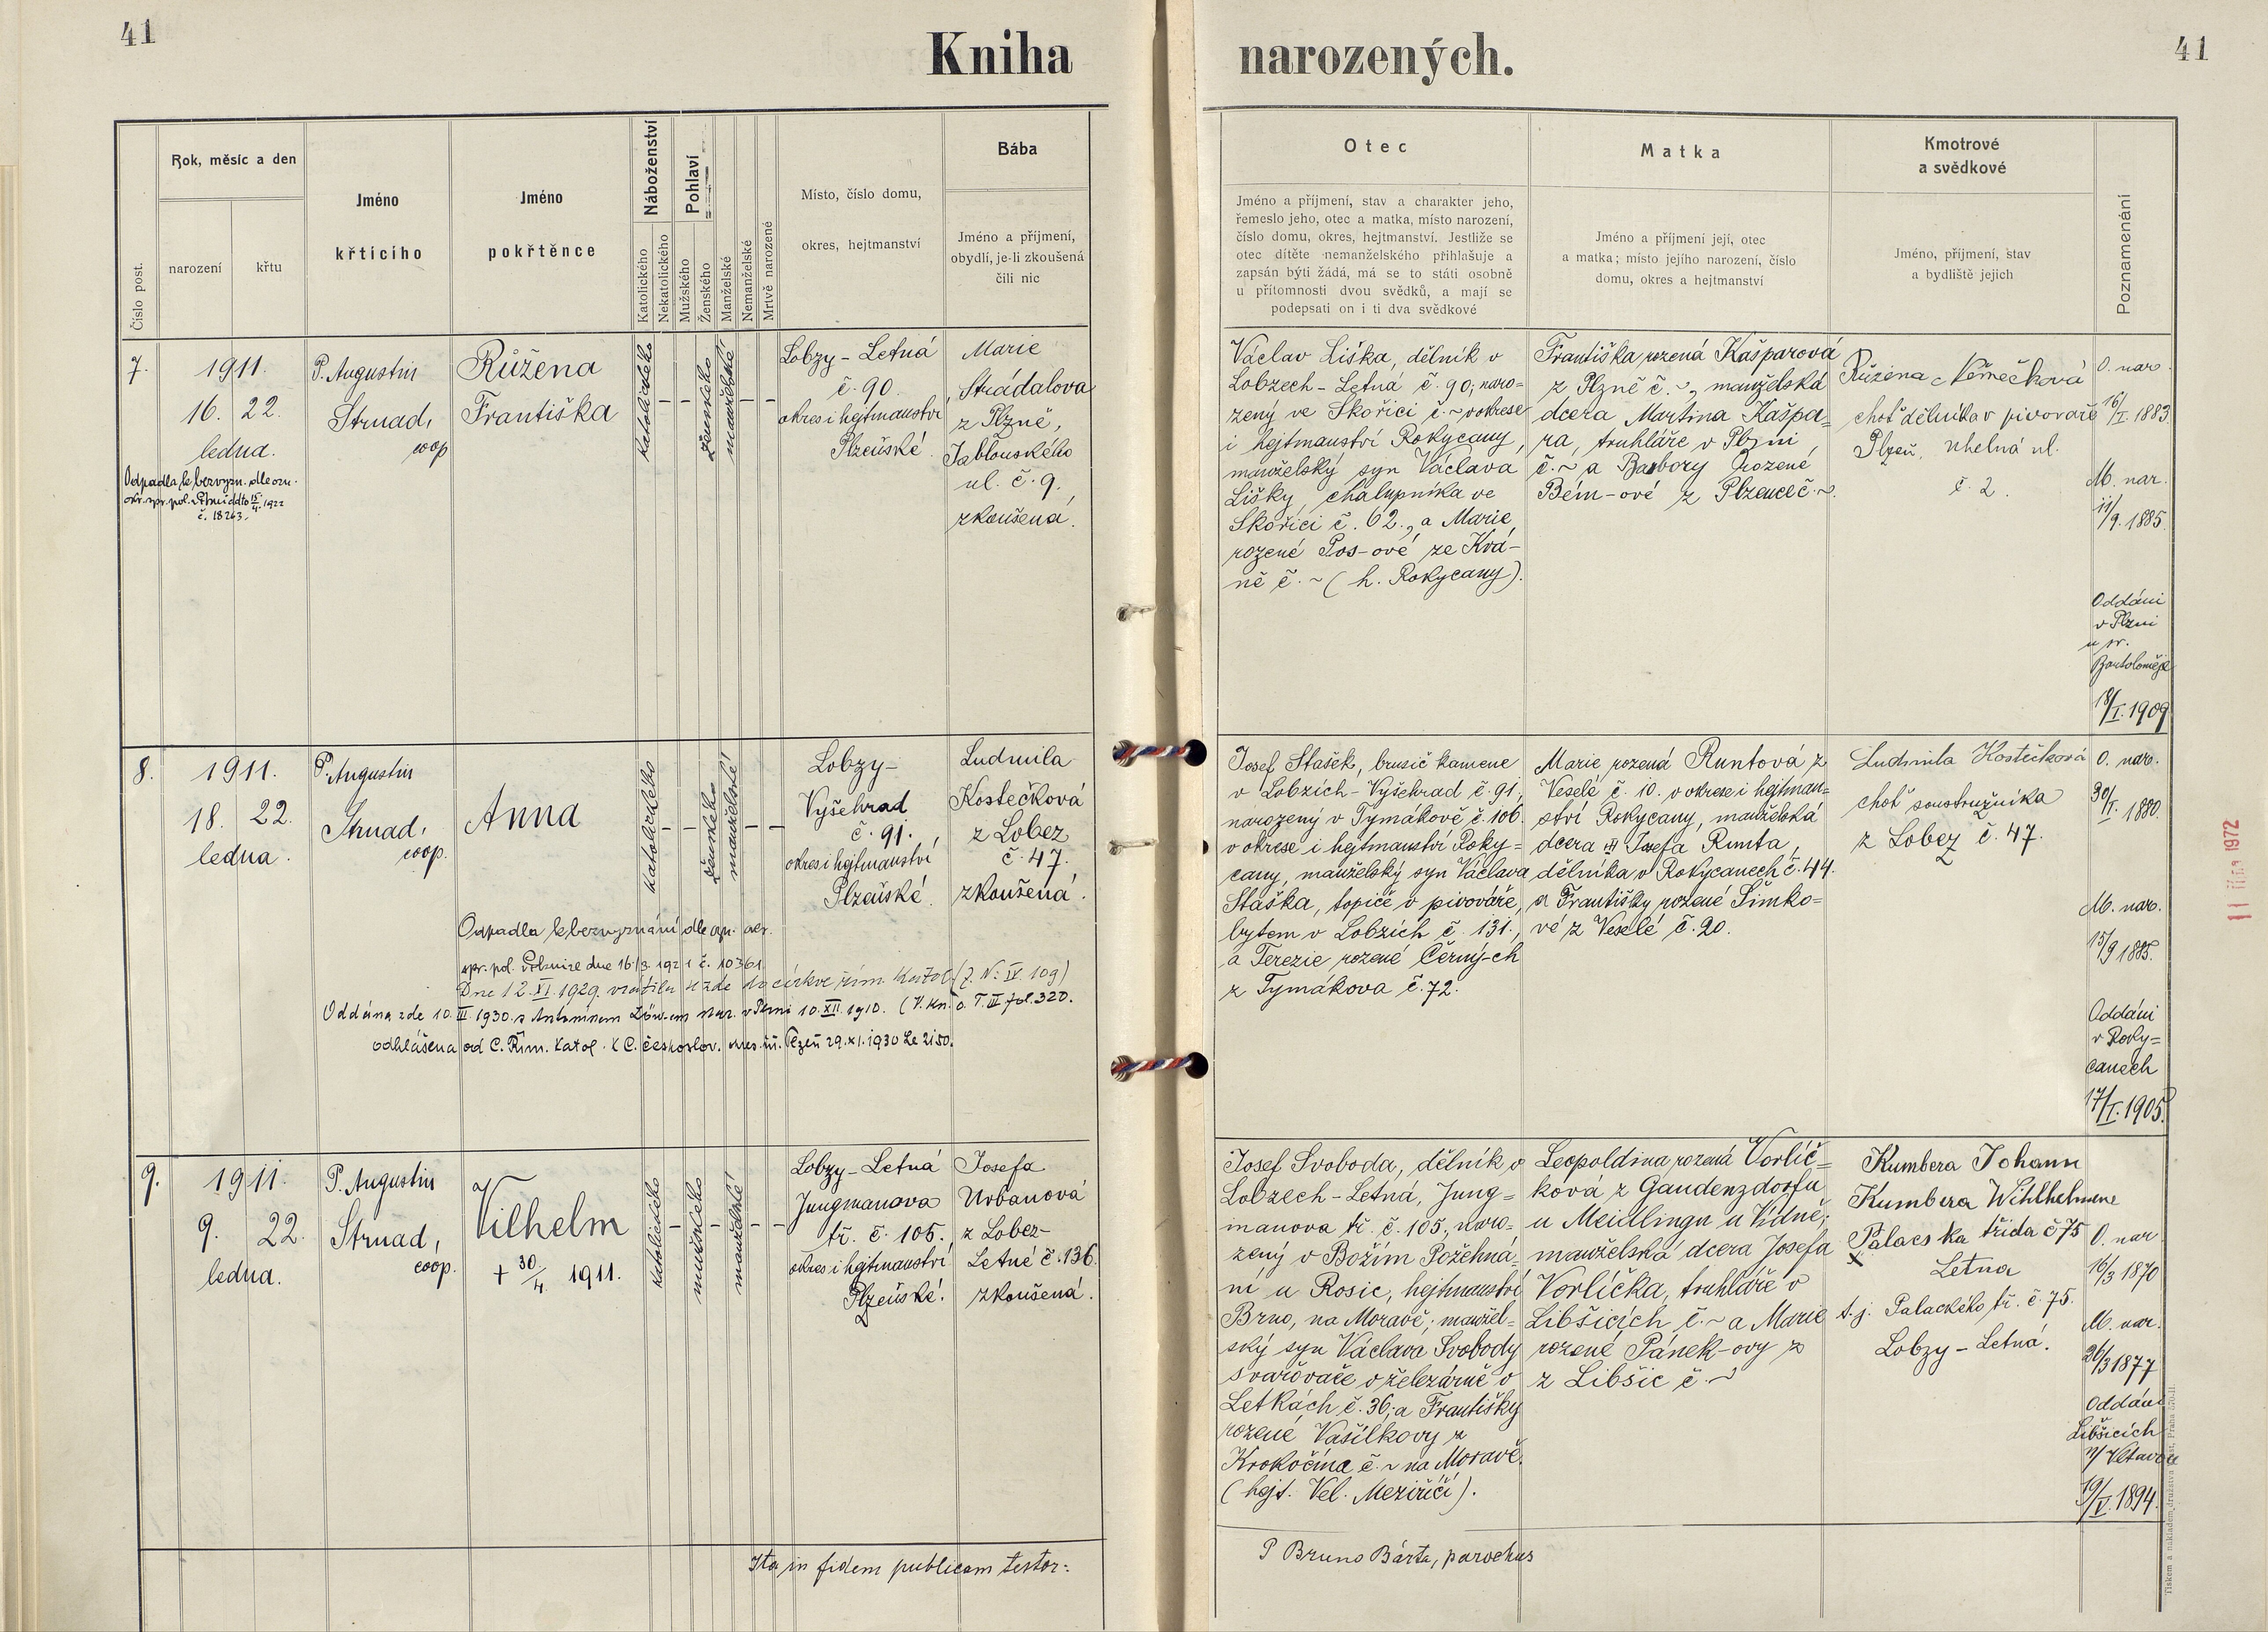 41
Kniha narozených.
41
Číslo post.
Rok, měsíc a den
narození
křtu
Jméno
křtícího
Jméno
pokřtěnce
Náboženství
Katolického
Nekatolického
Pohlaví
Mužského
Ženského
Manželské
Nemanželské
Mrtvě narozené
Místo, číslo domu,
okres, hejtmanství
Bába
Jméno a příjmení,
obydlí, je-li zkoušená
čili nic
Otec
Jméno a příjmení, stav a charakter jeho,
řemeslo jeho, otec a matka, místo narození,
číslo domu, okres, hejtmanství. Jestliže se
otec dítěte nemanželského přihlašuje a
zapsán býti žádá, má se to státi osobně
u přítomnosti dvou svědků, a mají se
podepsati on i ti dva svědkové
Matka
Jméno a příjmení její, otec
a matka; místo jejího narození, číslo
domu, okres a hejtmanství
Kmotrové
a svědkové
Jméno, příjmení, stav
a bydliště jejich
Poznamenání
7.
1911.
16. 22.
ledna.
Odpadla k bezvyzn. dle ozn.
okr. spr. pol. v Plzni ddto 15/4. 1922
č. 18263.
P. Augustin
Strnad,
coop
Růžena
Františka
katolického
-
-
ženského
manželské
-
-
Lobzy - Letná
č. 90.
okres i hejtmanství
Plzeňské.
Marie
Strádalova
z Plzně,
Jablonského
ul. č. 9.
zkoušená.
Václav Liška, dělník v
Lobzech - Letná č. 90, naro=
zený ve Skořici č. ~ v okrese
i hejtmanství Rokycany,
manželský syn Václava
Lišky, chalupníka ve
Skořici č. 62., a Marie,
rozené Pos-ové ze Kvá-
ně č. ~ (h. Rokycany).
Františka rozená Kašparová
z Plzně č. ~, manželská
dcera Martina Kašpa=
ra, truhláře v Plzni
č. ~ a Barbory rozené
Bém-ové z Plzence č. ~.
Růžena Němečková
choť dělníka v pivováře
Plzeň, Uhelná ul.
č. 2.
O. nar.
16/I. 1883.
M. nar.
11/9. 1885.
Oddáni
v Plzni
u sv.
Bartoloměje
18/I. 1909
8.
1911.
18. 22.
ledna.
P. Augustin
Strnad,
coop.
Anna
katolického
-
-
ženského
manželské
-
-
Lobzy-
Vyšehrad
č. 91.,
okres i hejtmanství
Plzeňské.
Ludmila
Kostečková
z Lobez
č. 47.
zkoušená.
Odpadla k bezvyznání dle ozn. okr.
spr. pol. v Plzni ze dne 16/3. 1921 č. 10361.
Dne 12. XI. 1929. vrátila se zde do církve řím. katol. (j. N: IV 109)
Oddána zde 10. III. 1930. s Antonínem Löw-em nar. v Plzni 10. XII. 1910. (K. kn. o. T. III fol. 320.
odhlášena od C. Řím. Katol. k C. českoslov. okres. úř. Plzeň 29. XI. 1930 Le 2150.
Josef Stašek, brusič kamene
v Lobzích - Vyšehrad č. 91.,
narozený v Tymákově č. 106.
v okrese i hejtmanství Roky=
cany, manželský syn Václava
Staška, topiče v pivováře,
bytem v Lobzích č. 131.,
a Terezie rozené Černý-ch
z Tymákova č. 72.
Marie, rozená Runtová z
Veselé č. 10. v okrese i hejtman=
ství Rokycany, manželská
dcera Josefa Runta,
dělníka v Rokycanech č. 44.
a Františky rozené Šimko=
vé z Veselé č. 20.
Ludmila Kostečková
choť soustružníka
z Lobez č. 47.
O. nar.
30/I. 1880.
M. nar.
15/9 1885.
Oddáni
v Roky=
canech
17/I. 1905.
9.
1911.
9. 22.
ledna.
P. Augustin
Strnad,
coop.
Vilhelm
+ 30/4. 1911.
katolického
-
mužského
-
manželské
-
-
Lobzy - Letná
Jungmanova
tř. č. 105.,
okres i hejtmanství
Plzeňské.
Josefa
Urbanová
z Lobez-
Letné č. 136.
zkoušená.
Josef Svoboda, dělník v
Lobzech - Letná, Jung=
manova tř. č. 105., naro=
zený v Božím Požehná=
ní u Rosic, hejtmanství
Brno, na Moravě; manžel=
ský syn Václava Svobody
svařovače v železárně v
Letkách č. 36; a Františky
rozené Vašílkovy z
Krokočína č. ~ na Moravě.
(hejt. Vel. Meziříčí).
Leopoldina rozená Vorlíč=
ková z Gaudenzdorfu
u Meidlingu u Vídně;
manželská dcera Josefa
Vorlíčka, truhláře v
Libšicích č. ~ a Marie
rozené Pánek-ovy z
z Libšic č. ~
Kumbera Johann
Kumbera Wihlhelmene
Palacska třida č 75
Letna
t. j. Palackého tř. č. 75.
Lobzy - Letná.
O. nar
16/3 1870
M. nar.
26/3 1877
Oddáni
Libšicích
n/ Vltavou
19/V. 1894.
Ita in fidem publicam testor:
P Bruno Bárta, parochus
1972